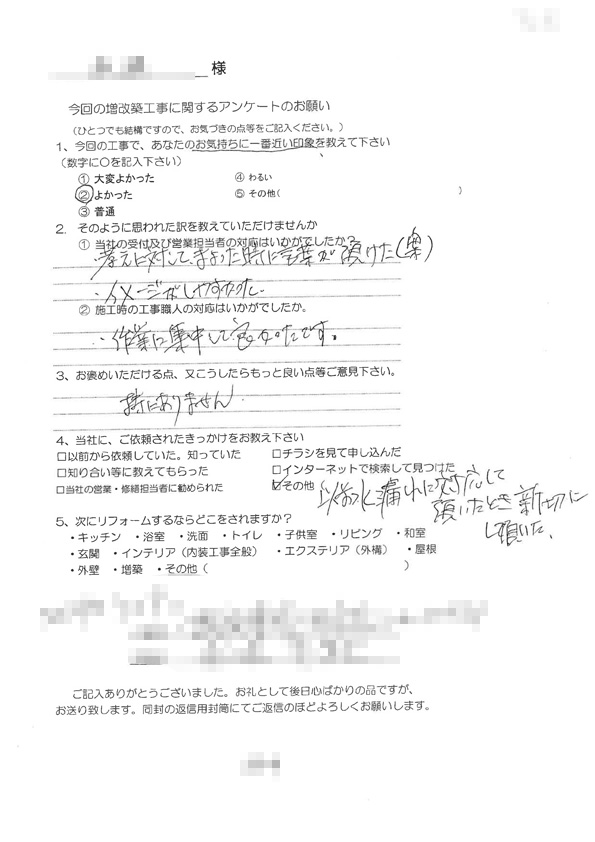 様
今回の増改築工事に関するアンケートのお願い
（ひとつでも結構ですので、お気づきの点等をご記入ください。）
1、今回の工事で、あなたのお気持ちに一番近い印象を教えて下さい
（数字に〇を記入下さい）
① 大変よかった ④ わるい
② よかった ⑤ その他（ ）
③ 普通
2. そのように思われた訳を教えていただけませんか
① 当社の受付及び営業担当者の対応はいかがでしたか？
・考えに対して、まよった時に言葉が頂けた（案）
・イメージがしやすかった。
② 施工時の工事職人の対応はいかがでしたか。
・作業に集中して良かったです。
3、お褒めいただける点、又こうしたらもっと良い点等ご意見下さい。
特にありません
4、当社に、ご依頼されたきっかけをお教え下さい
□以前から依頼していた。知っていた □チラシを見て申し込んだ
□知り合い等に教えてもらった □インターネットで検索して見つけた
□当社の営業・修繕担当者に勧められた ☑その他 以前水漏れに対応して
頂いたとき新切に
して頂いた。
5、次にリフォームするならどこをされますか？
・キッチン ・浴室 ・洗面 ・トイレ ・子供室 ・リビング ・和室
・玄関 ・インテリア（内装工事全般） ・エクステリア（外構） ・屋根
・外壁 ・増築 ・その他（ ）
ご記入ありがとうございました。お礼として後日心ばかりの品ですが、
お送り致します。同封の返信用封筒にてご返信のほどよろしくお願いします。